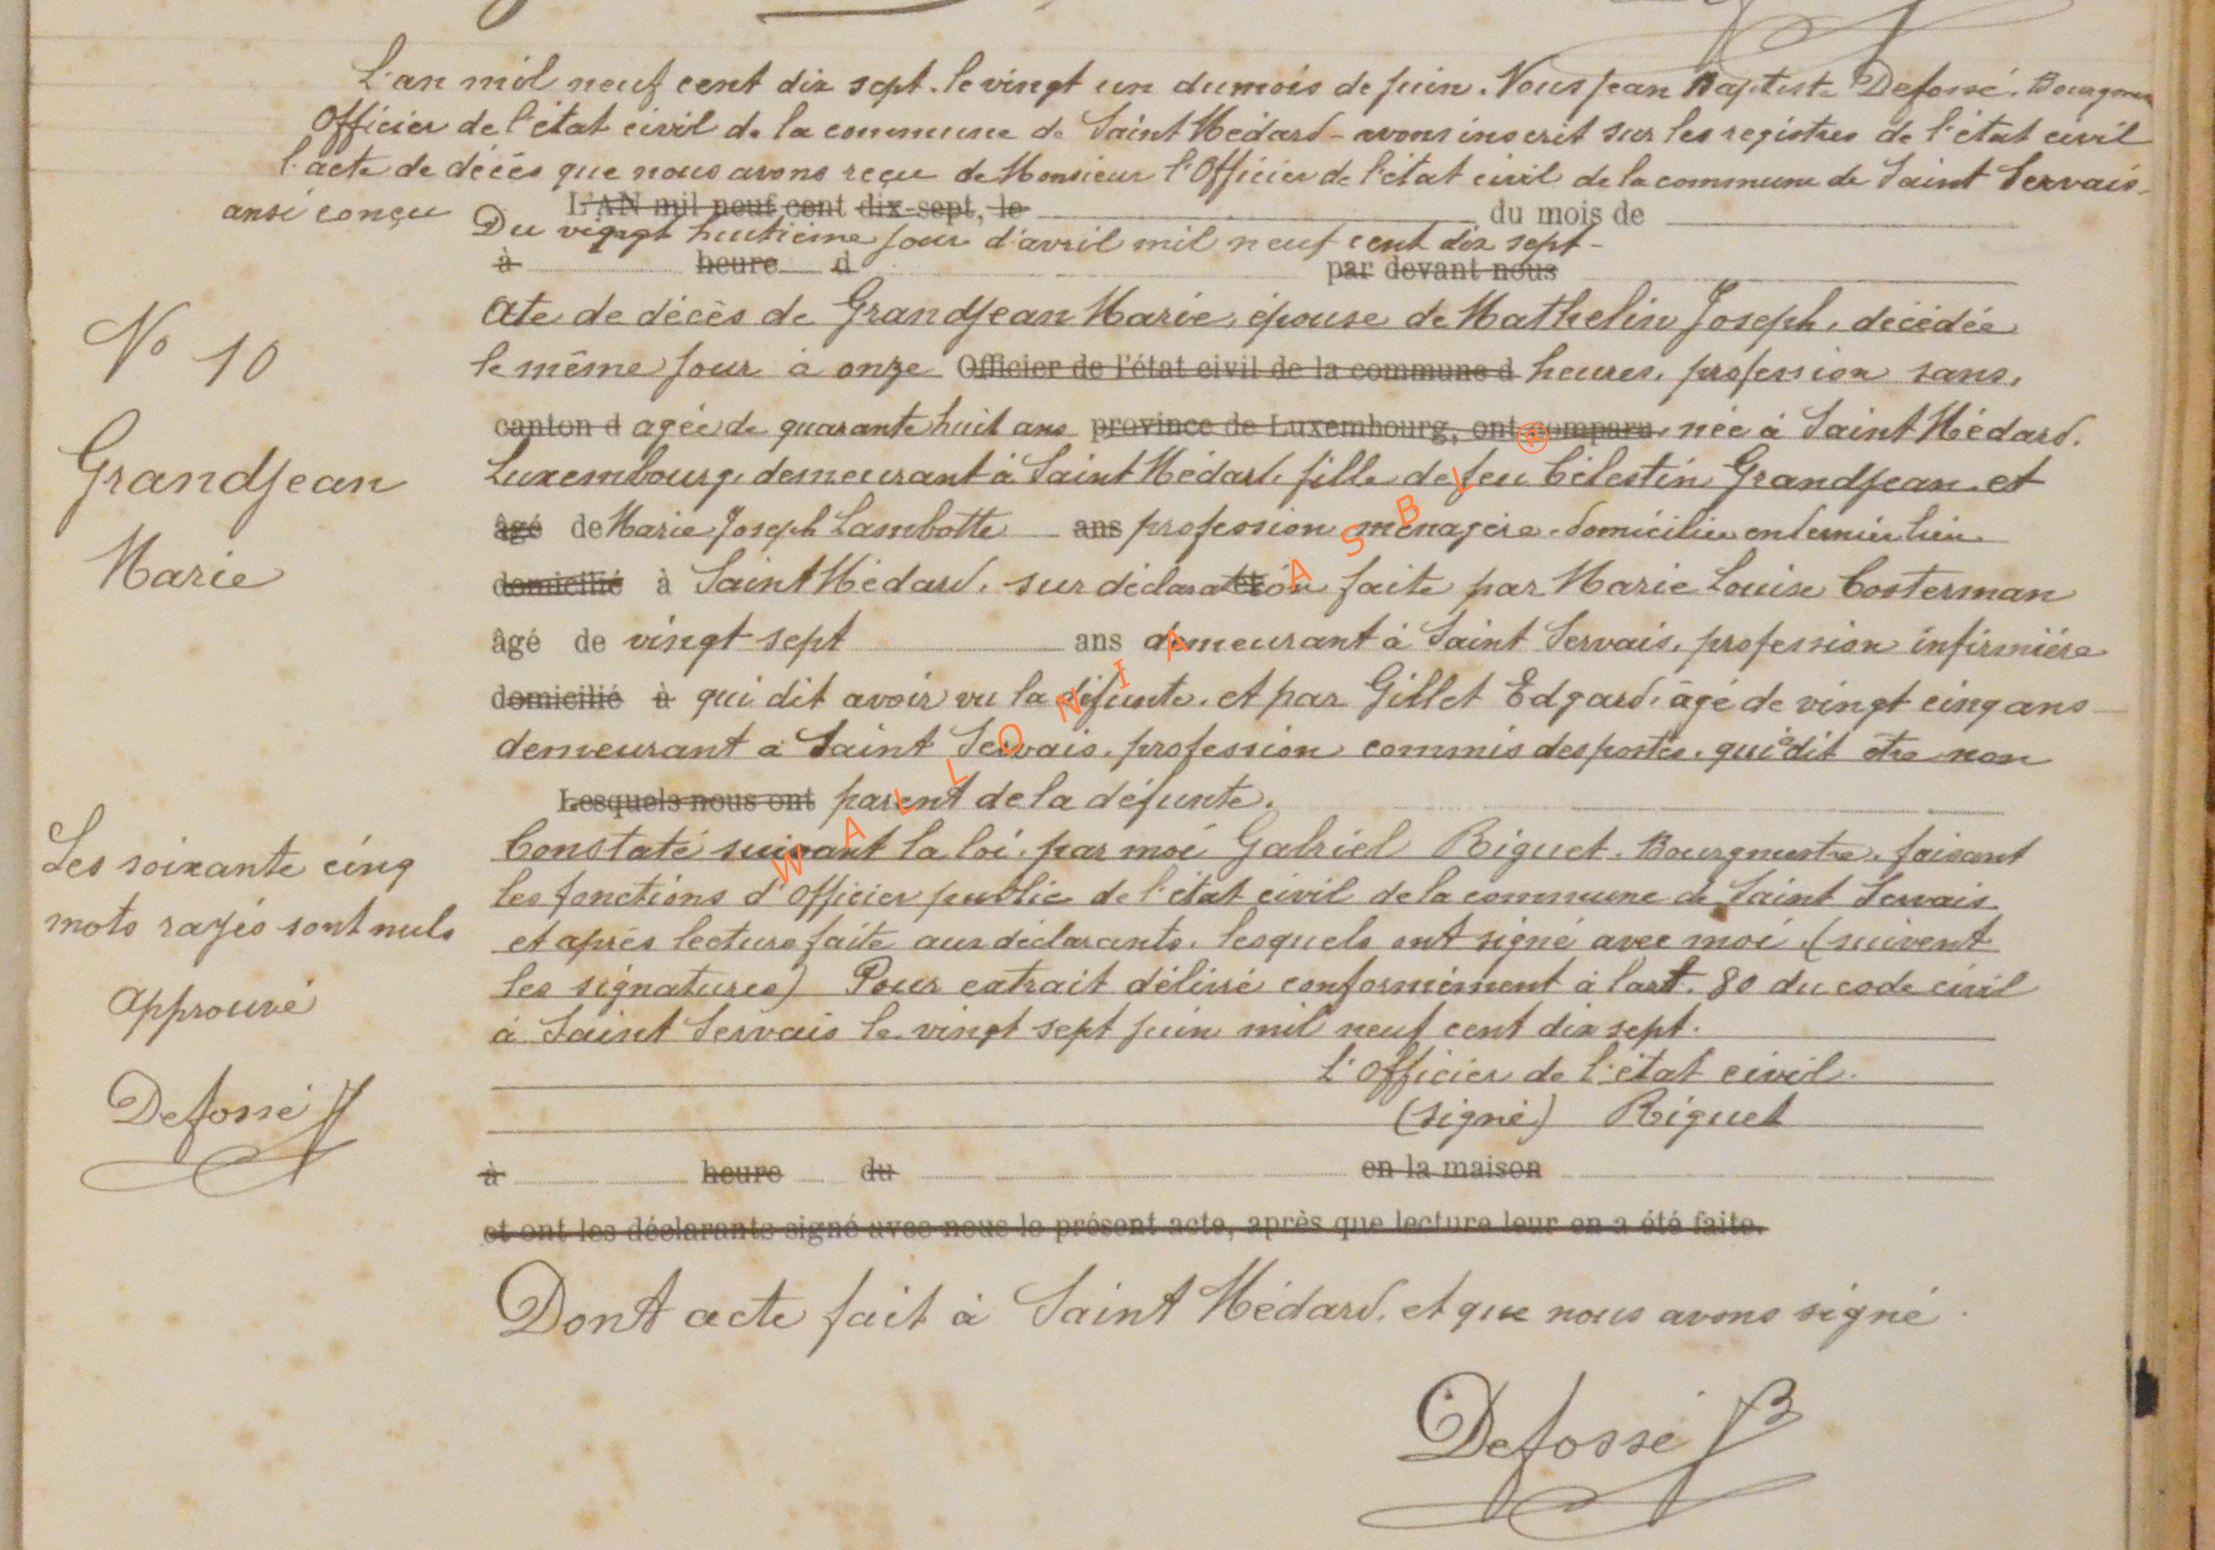 L'an mil neuf cent dix sept. le vingt un du mois de juin. Nous Jean Baptiste Defossé. Bourgmes
Officier de l'état civil de la commune de Saint Médard - avons inscrit sur les registres de l'état civil
l'acte de décès que nous avons reçu de Monsieur l'Officier de l'état civil de la commune de Saint Servais -
ansi conçu
L'AN mil neuf cent dix-sept, le du mois de
Du vingt huitième jour d'avril mil neuf cent dix sept -
à heure d par devant nous
Ate de décès de Grandjean Marie, épouse de Mathelin Joseph, décédée
le même jour à onze Officier de l'état civil de la commune d heures, profession sans,
canton d agée de quarante huit ans province de Luxembourg, ont comparu, née à Saint Médard.
Luxembourg, demeurant à Saint Médard, fille de feu Célestin Grandjean et
âgé de Marie Joseph Lambotte ans profession ménagère. domiciliée en dernier lieu
domicilié à Saint Médard, sur déclaration faite par Marie Louise Costerman
âgé de vingt sept ans demeurant à Saint Servais, profession infirmière
domicilié à qui dit avoir vu la défunte, et par Gillet Edgard, âgé de vingt cinq ans
demeurant à Saint Servais, profession commis des postes, qui a dit être non
Lesquels nous ont parent de la défunte.
Constaté suivant la loi, par moi Gabriel Riguet. Bourgmestre, faisant
les fonctions d'officier public de l'état civil de la commune de Saint Servais
et après lecture faite aux déclarants, lesquels ont signé avec moi (suivent
les signatures) Pour extrait délivré conformément à l'art. 80 du code civil
à Saint Servais le vingt sept juin mil neuf cent dix sept.
l'Officier de l'état civil.
(signé) Riguet
à heure du en la maison
et ont les déclarants signé avec nous le présent acte, après que lecture leur en a été faite.
Dont acte fait à Saint Médard, et que nous avons signé.
Defossé JB
No 10
Grandjean
Marie
Les soixante cinq
mots rayés sont nuls
Approuvé
Defossé J
WALLONIA ASBL ®